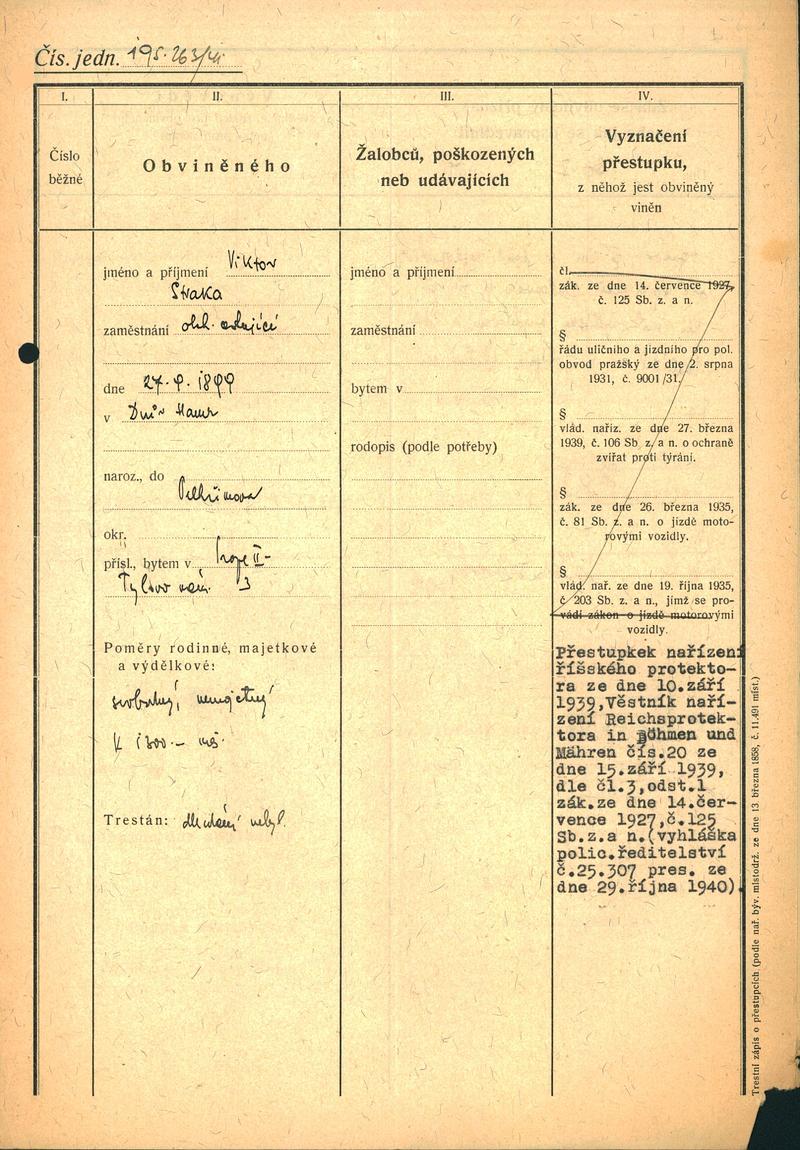 Čís. jedn. 195.263/41
I.
II.
III.
IV.
Číslo
běžné
Obviněného
Žalobců, poškozených
neb udávajících
Vyznačení
přestupku,
z něhož jest obviněný
viněn
jméno a příjmení Viktor
Straka
zaměstnání obch.
dne 27.9.1899
v Dvůr
naroz., do
Pelhřimova
okr.
přísl., bytem v Praze II-
Tylovo nám. 3
Poměry rodinné, majetkové
a výdělkové:
svobodný, nemajetný
K 1300.- měs.
Trestán: nebyl.
jméno a příjmení
zaměstnání
bytem v
rodopis (podle potřeby)
čl.
zák. ze dne 14. července 1927,
č. 125 Sb. z. a n.
§
řádu uličního a jízdního pro pol.
obvod pražský ze dne 2. srpna
1931, č. 9001/31.
§
vlád. naříz. ze dne 27. března
1939, č. 106 Sb z. a n. o ochraně
zvířat proti týrání.
§
zák. ze dne 26. března 1935,
č. 81 Sb. z. a n. o jízdě moto-
rovými vozidly.
§
vlád. nař. ze dne 19. října 1935,
č. 203 Sb. z. a n., jímž se pro-
vádí zákon o jízdě motorovými
vozidly.
Přestupkek nařízení
říšského protekto-
ra ze dne 10.září
1939,Věstník naří-
zení Reichsprotek-
tora in Böhmen und
Mähren čís.20 ze
dne 15.září 1939,
dle čl.3,odst.1
zák.ze dne 14.čer-
vence 1927,č.125
Sb.z.a n.(vyhláška
polic.ředitelství
č.25.307 pres. ze
dne 29.října 1940).
Trestní zápis o přestupcích (podle nař. býv. místodrž. ze dne 13. března 1858, č. 11.491 míst.)